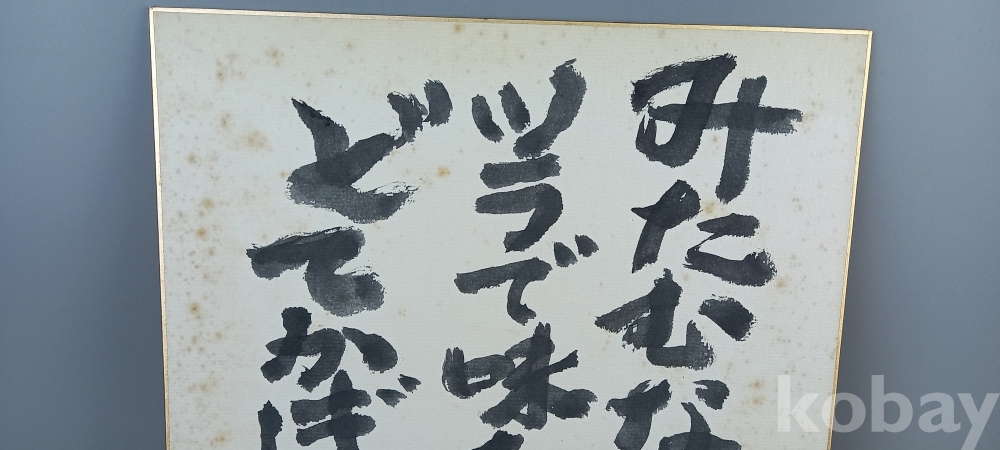 みたむな
ツラで味
どてかぼ
kobay